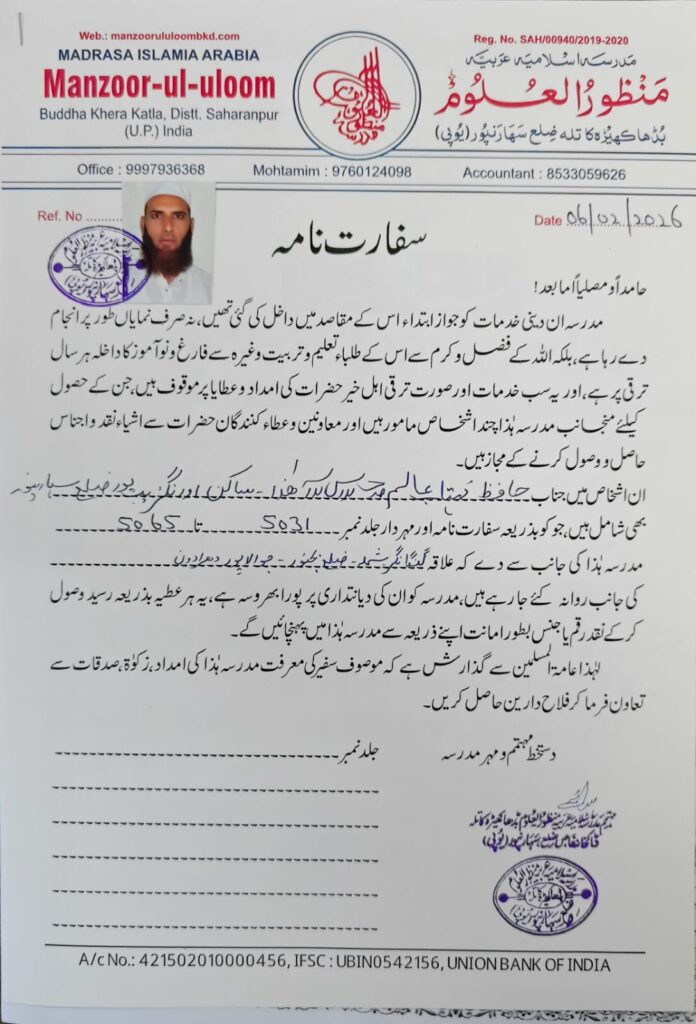 Web.: manzoorululoombkd.com
MADRASA ISLAMIA ARABIA
Manzoor-ul-uloom
Buddha Khera Katla, Distt. Saharanpur
(U.P.) India
Reg. No. SAH/00940/2019-2020
مدرسہ اسلامیہ عربیہ
منظورُ العلُوم
بُڈھا کھیڑہ کا تلہ ضِلع سَهَارَنپُور (یُوپی)
Office : 9997936368
Mohtamim : 9760124098
Accountant : 8533059626
Ref. No ..........
Date 06/02/2026
سفارت نامہ
حامداً و مصلیاً اما بعد!
مدرسہ ان دینی خدمات کو جواز ابتداء اس کے مقاصد میں داخل کی گئی تھیں، نہ صرف نمایاں طور پر انجام
دے رہا ہے، بلکہ اللہ کے فضل و کرم سے اس کے طلباء تعلیم و تربیت وغیرہ سے فارغ و نو آموز کا داخلہ ہر سال
ترقی پر ہے، اور یہ سب خدمات اور صورت ترقی اہل خیر حضرات کی امداد و عطایا پر موقوف ہیں، جن کے حصول
کیلئے منجانب مدرسہ ہٰذا چند اشخاص مامور ہیں اور معاونین و عطاء کنندگان حضرات سے اشیاء نقد و اجناس
حاصل و وصول کرنے کے مجاز ہیں۔
ان اشخاص میں جناب حافظ عالم ساکن
بھی شامل ہیں، جو کو بذریعہ سفارت نامہ اور مہر دار جلد نمبر 5031 تا 5065
مدرسہ ہٰذا کی جانب سے دے کہ علاقہ
کی جانب روانہ کئے جا رہے ہیں، مدرسہ کو ان کی دیانتداری پر پورا بھروسہ ہے، یہ ہر عطیہ بذریعہ رسید وصول
کر کے نقد رقم یا جنس بطور امانت اپنے ذریعہ سے مدرسہ ہٰذا میں پہنچائیں گے۔
لہٰذا عامۃ المسلمین سے گذارش ہے کہ موصوف سفیر کی معرفت مدرسہ ہٰذا کی امداد، زکوٰۃ، صدقات سے
تعاون فرما کر فلاح دارین حاصل کریں۔
دستخط مہتمم و مہر مدرسہ
جلد نمبر
مہتمم مدرسہ اسلامیہ عربیہ منظور العلوم بڈھا کھیڑہ کا تلہ
ضلع سہارنپور (یوپی)
A/c No.: 421502010000456, IFSC : UBIN0542156, UNION BANK OF INDIA